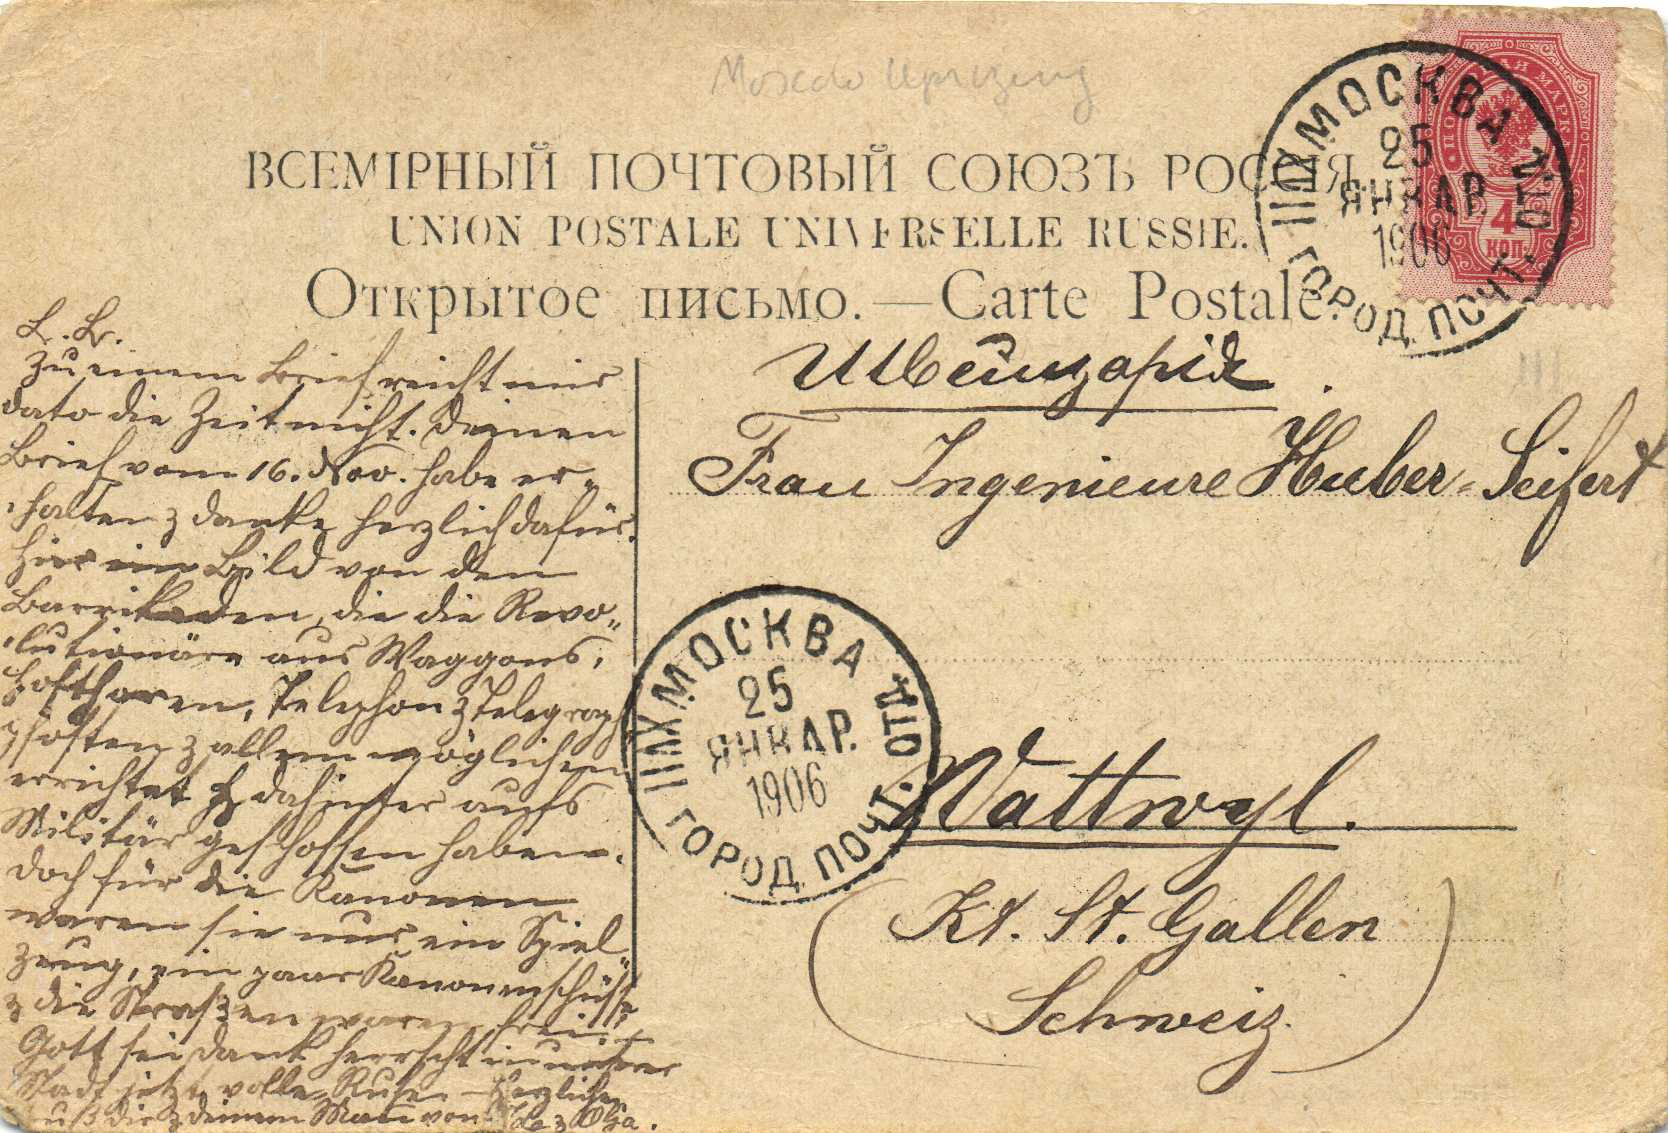 Moscow Uprizing
ВСЕМІРНЫЙ ПОЧТОВЫЙ СОЮЗЪ РОССІЯ.
UNION POSTALE UNIVERSELLE RUSSIE.
Открытое письмо. — Carte Postale.
ПОЧТОВАЯ МАРКА
4
КОП.
МОСКВА
25
ЯНВАР.
1906
XVIII ГОРОД. ПОЧТ. ОТД.
Швейцарія
Frau Ingenieure Huber-Seifert
Wattwyl.
(Kt. St. Gallen
Schweiz.)
МОСКВА
25
ЯНВАР.
1906
XVIII ГОРОД. ПОЧТ. ОТД.
L. L.
Zu einem Brief reicht mir
dato die Zeit nicht. Deinen
Brief vom 16. Nov. habe er-
halten & danke herzlich dafür.
Hier ein Bild von den
Barrikaden, die die Revo-
lutionäre aus Waggons,
Telephon & Telegraph
pfosten & allem möglichen
errichtet & dahinter aufs
Militär geschossen haben.
Doch für die Kanonen
waren sie nur ein Spiel-
zeug, ein paar Kanonenschüsse
& die Straßen waren frei. —
Gott sei Dank herrscht in unserer
Stadt jetzt volle Ruhe. — Herzlichen
Gruß dir & deinem Mann von & Olga.